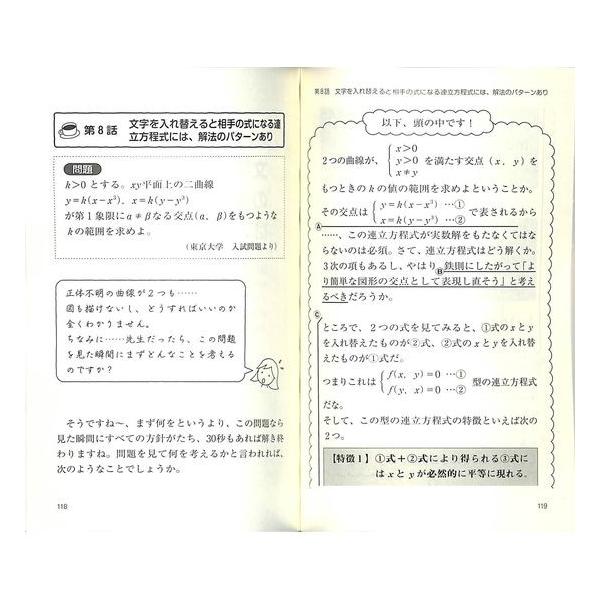 第8話 文字を入れ替えると相手の式になる連
立方程式には、解法のパターンあり
問題
k>0とする。xy平面上の二曲線
y=k(x-x³)、x=k(y-y³)
が第1象限にα≠βなる交点(α、β)をもつような
kの範囲を求めよ。
(東京大学 入試問題より)
正体不明の曲線が2つも……
図も描けないし、どうすればいいのか
全くわかりません。
ちなみに……先生だったら、この問題
を見た瞬間にまずどんなことを考える
のですか?
そうですね〜、まず何をというより、この問題なら
見た瞬間にすべての方針がたち、30秒もあれば解き終
わりますね。問題を見て何を考えるかと言われれば、
次のようなことでしょうか。
118
第8話 文字を入れ替えると相手の式になる連立方程式には、解法のパターンあり
以下、頭の中です!
2つの曲線が、{x>0 y>0 x≠y を満たす交点(x、y)を
もつときのkの値の範囲を求めよということか。
その交点は{y=k(x-x³) …① x=k(y-y³) …② で表されるから
A
……、この連立方程式が実数解をもたなくてはな
らないのは必須。さて、連立方程式はどう解くか。
3次の項もあるし、やはりB鉄則にしたがって「よ
り簡単な図形の交点として表現し直そう」と考え
るべきだろうか。
C
ところで、2つの式を見てみると、①式のxとy
を入れ替えたものが②式、②式のxとyを入れ替
えたものが①式だ。
つまりこれは{f(x, y)=0 …① f(y, x)=0 …② 型の連立方程式
だな。
そして、この型の連立方程式の特徴といえば次の
2つ。
【特徴1】①式+②式により得られる③式に
はxとyが必然的に平等に現れる。
119